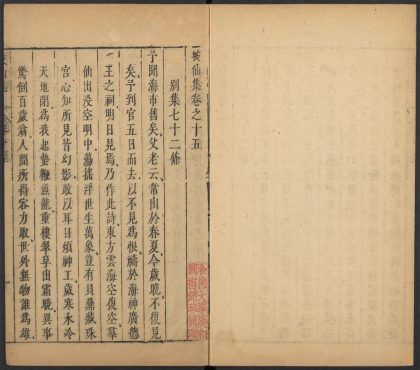 坡仙集卷之十五
別集七十二條
予聞海市舊矣父老云常出於春夏今歲晚不復見
矣予到官五日而去以不見為恨禱於海神廣德
王之祠明日見焉乃作此詩東方雲海空復空羣
仙出沒空明中蕩搖浮世生萬象豈有貝闕藏珠
宮心知所見皆幻影敢以耳目煩神工歲寒水冷
天地閉為我起蟄鞭魚龍重樓翠阜出霜曉異事
驚倒百歲翁人間所得容力取世外無物誰為雄